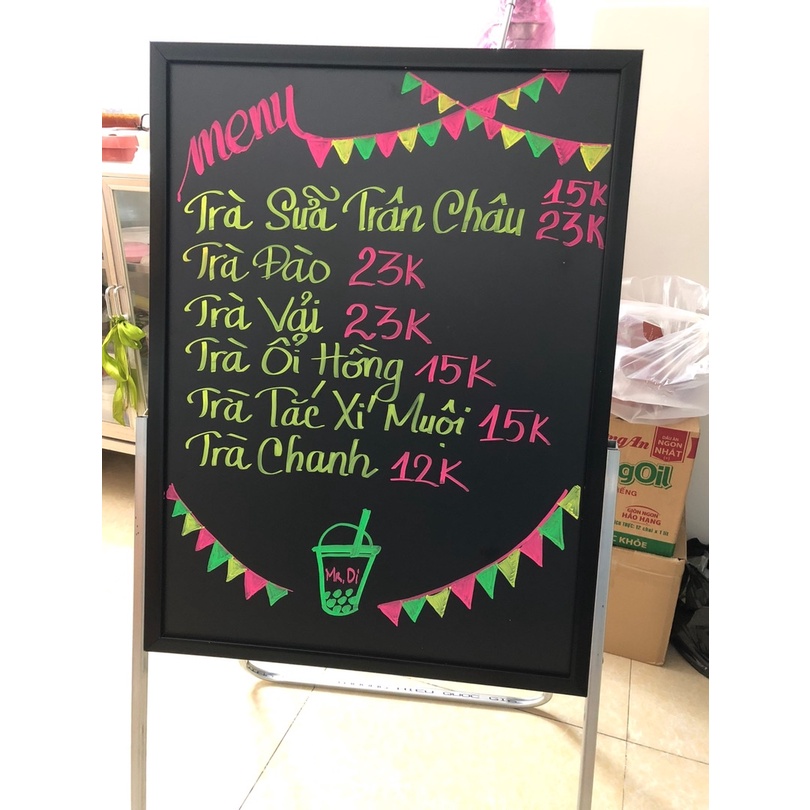 menu
Trà Sữa Trân Châu 15K 23K
Trà Đào 23K
Trà Vải 23K
Trà Ổi Hồng 15K
Trà Tắc Xí Muội 15K
Trà Chanh 12K
Mr, Di
DẦU ĂN
NGON
NHẤT
gOil
GIÒN NGON
HẢO HẠNG
C KHỎE